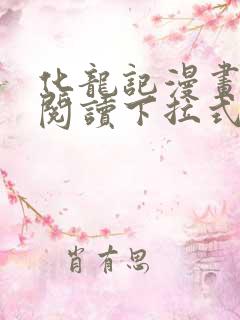 化龍記漫畫
閱讀下拉式
肖有思